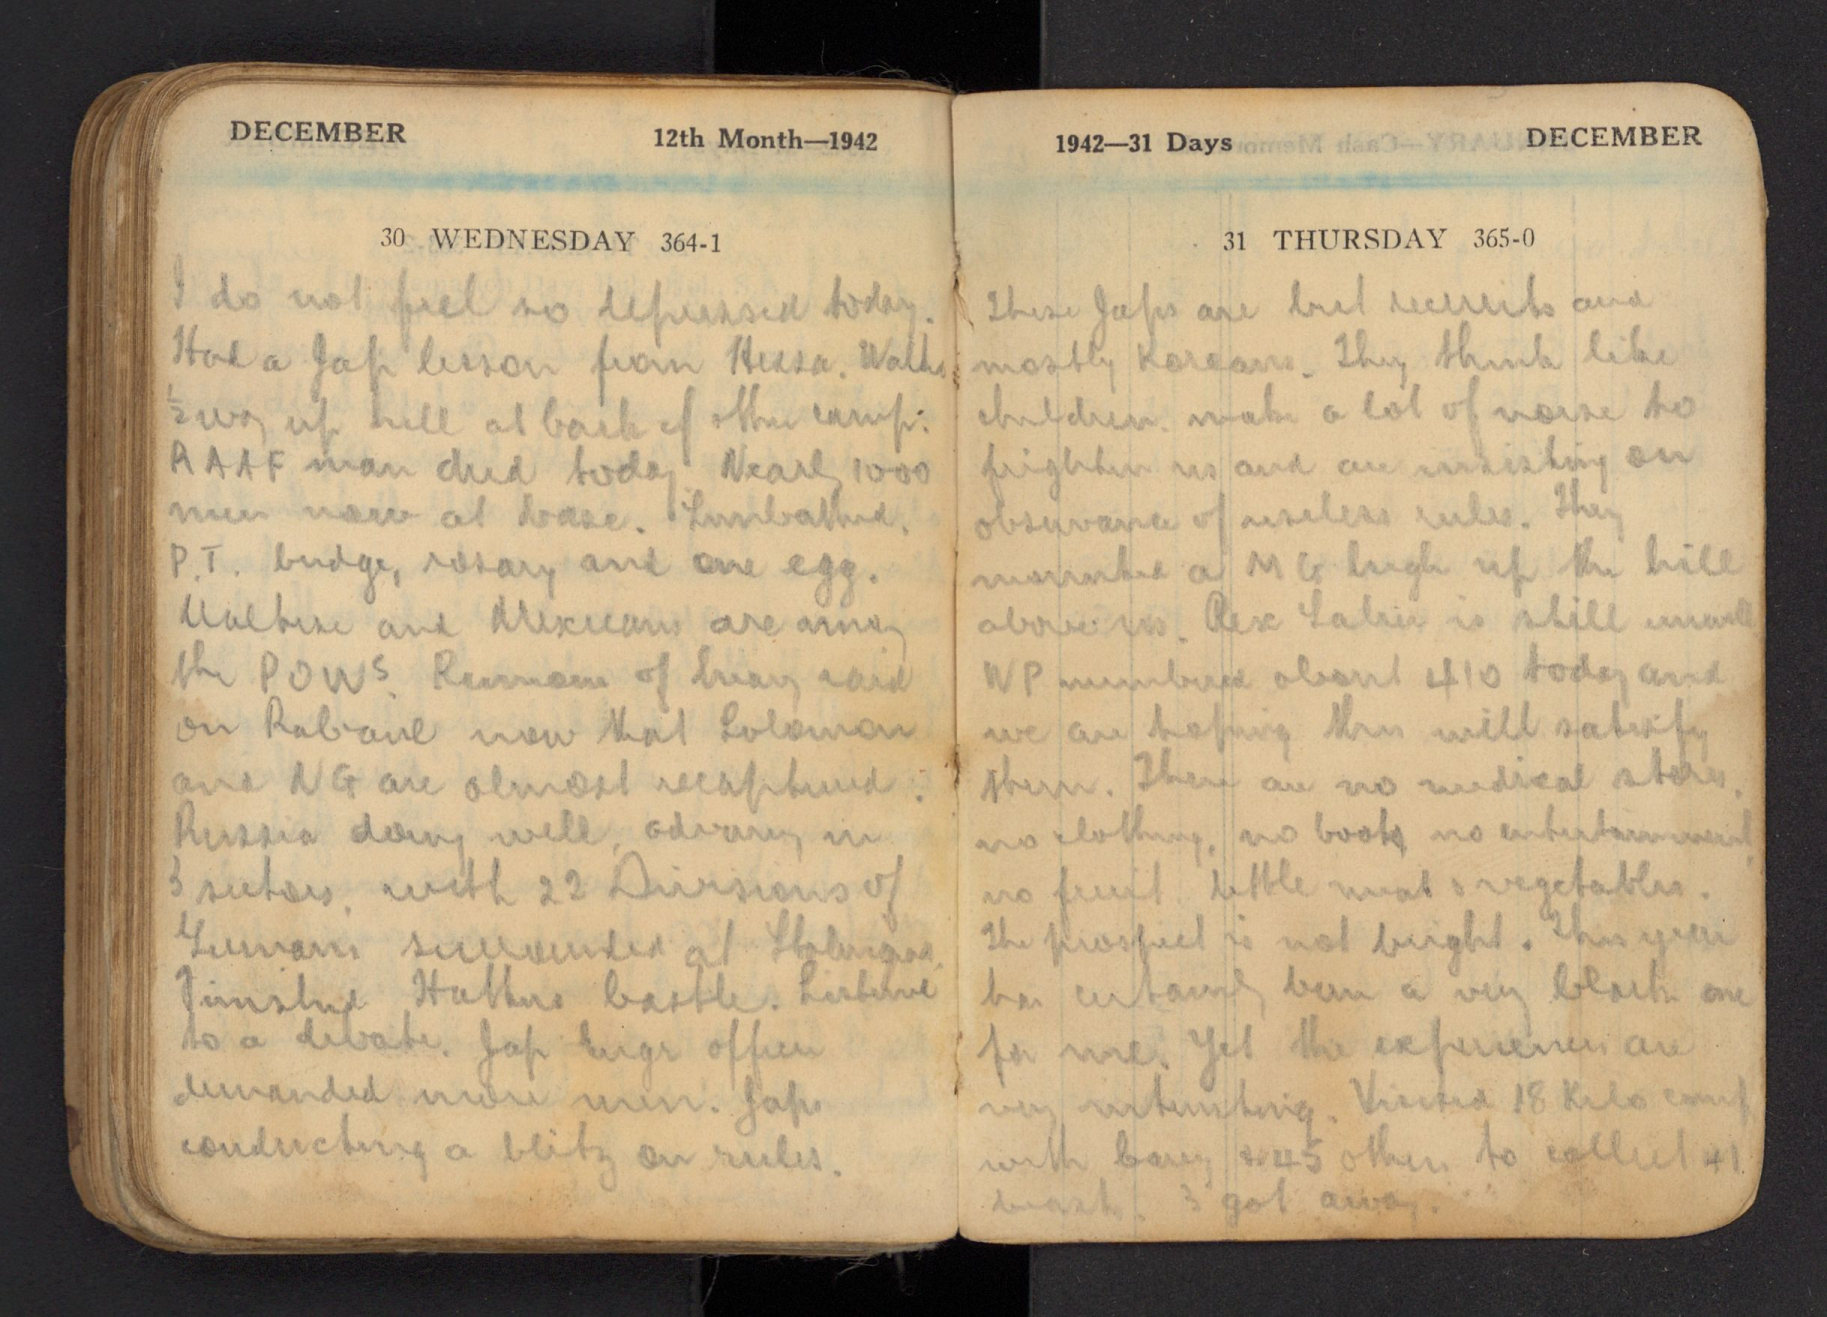 DECEMBER 12th Month—1942
30 WEDNESDAY 364-1
I do not feel so depressed today.
Had a Jap lesson from Hessa. Walked
½ way up hill at back of other camp.
RAAF man died today. Nearly 1000
men now at base. Sunbathed,
P.T. bridge, rosary and one egg.
Maltese and Mexicans are among
the POWs. Rumours of heavy raid
on Rabaul now that Solomon
and NG are almost recaptured.
Russia doing well, advancing in
3 sectors, with 22 Divisions of
Germans surrounded at Stalingrad.
Finished Hatters Castle. Listened
to a debate. Jap Engr officer
demanded more men. Japs
conducting a blitz on rules.
1942—31 Days DECEMBER
31 THURSDAY 365-0
These Japs are but recruits and
mostly Koreans. They think like
children, make a lot of noise to
frighten us and are insisting on
observance of useless rules. They
mounted a MG high up the hill
above us. Rex is still unwell
WP numbered about 410 today and
we are hoping this will satisfy
them. There are no medical stores,
no clothing, no boots no entertainment,
no fruit, little meat & vegetables.
The prospect is not bright. This year
has certainly been a very black one
for me. Yet the experiences are
very interesting. Visited 18 Kilo camp
with 45 others to collect 41
beasts. 3 got away.